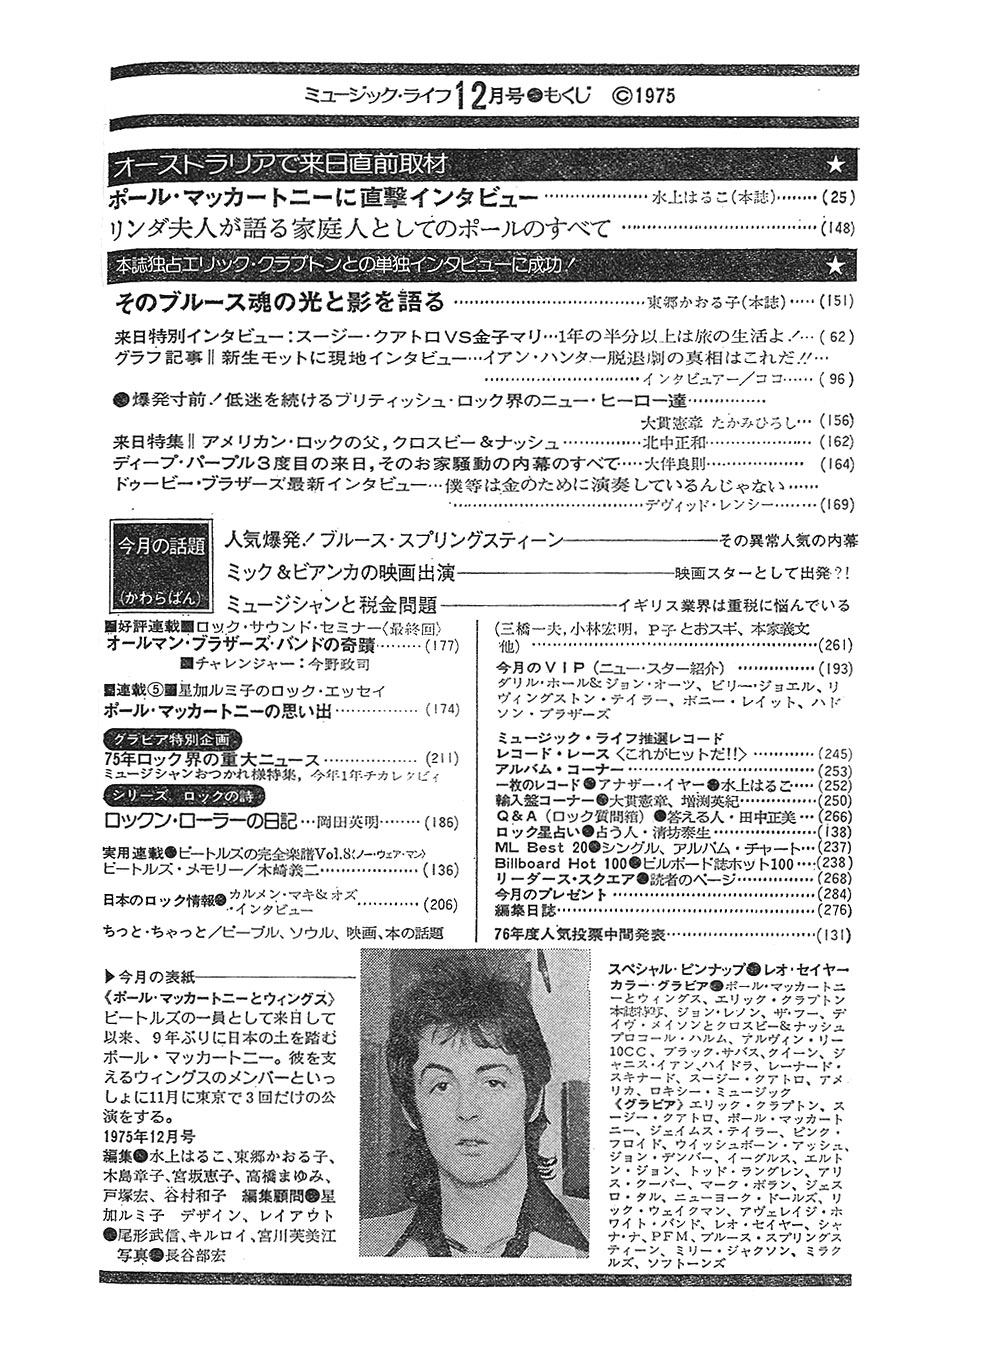 ミュージック・ライフ12月号●もくじ ©1975
オーストラリアで来日直前取材 ★
ポール・マッカートニーに直撃インタビュー…………水上はるこ(本誌)……(25)
リンダ夫人が語る家庭人としてのポールのすべて…………(148)
本誌独占エリック・クラプトンとの単独インタビューに成功! ★
そのブルース魂の光と影を語る…………東郷かおる子(本誌)……(151)
来日特別インタビュー:スージー・クアトロVS金子マリ…1年の半分以上は旅の生活よ!…(62)
グラフ記事‖新生モットに現地インタビュー…イアン・ハンター脱退劇の真相はこれだ!!…
…………インタビュアー/ココ……(96)
●爆発寸前!低迷を続けるブリティッシュ・ロック界のニュー・ヒーロー達…………
大貫憲章 たかみひろし…(156)
来日特集‖アメリカン・ロックの父,クロスビー&ナッシュ…………北中正和…………(162)
ディープ・パープル3度目の来日,そのお家騒動の内幕のすべて……大伴良則…………(164)
ドゥービー・ブラザーズ最新インタビュー…僕等は金のために演奏しているんじゃない……
…………デヴィッド・レンシー……(169)
今月の話題
(かわらばん)
人気爆発!ブルース・スプリングスティーン――その異常人気の内幕
ミック&ビアンカの映画出演――映画スターとして出発?!
ミュージシャンと税金問題――イギリス業界は重税に悩んでいる
■好評連載■ロック・サウンド・セミナー〈最終回〉
オールマン・ブラザーズ・バンドの奇蹟………(177)
■チャレンジャー:今野政司
■連載⑤■星加ルミ子のロック・エッセイ
ポール・マッカートニーの思い出…………(174)
グラビア特別企画
75年ロック界の重大ニュース…………(211)
ミュージシャンおつかれ様特集,今年1年チカレタビィ
シリーズ ロックの詩
ロックン・ローラーの日記…岡田英明……(186)
実用連載●ビートルズの完全楽譜Vol.8(ノー・ウェア・マン)
ビートルズ・メモリー/木崎義二…………(136)
日本のロック情報●カルメン・マキ&オズ
・インタビュー…………(206)
ちっと・ちゃっと/ピープル、ソウル、映画、本の話題
(三橋一夫,小林宏明,P子とおスギ、本家義文
他)…………(261)
今月のVIP(ニュー・スター紹介)…………(193)
ダリル・ホール&ジョン・オーツ、ビリー・ジョエル、リ
ヴィングストン・テイラー、ボニー・レイット、ハド
ソン・ブラザーズ
ミュージック・ライフ推選レコード
レコード・レース〈これがヒットだ!!〉…………(245)
アルバム・コーナー…………(253)
一枚のレコード●アナザー・イヤー●水上はるこ……(252)
輸入盤コーナー●大貫憲章、増渕英紀…………(250)
Q&A(ロック質問箱)●答える人・田中正美…(266)
ロック星占い●占う人・清坊泰生…………(138)
ML Best 20●シングル、アルバム・チャート…(237)
Billboard Hot 100●ビルボード誌ホット100…(238)
リーダース・スクエア●読者のページ…………(268)
今月のプレゼント…………(284)
編集日誌…………(276)
76年度人気投票中間発表…………(131)
▶今月の表紙――
《ポール・マッカートニーとウィングス》
ビートルズの一員として来日して
以来、9年ぶりに日本の土を踏む
ポール・マッカートニー。彼を支
えるウィングスのメンバーといっ
しょに11月に東京で3回だけの公
演をする。
1975年12月号
編集●水上はるこ、東郷かおる子、
木島章子、宮坂恵子、高橋まゆみ、
戸塚宏、谷村和子 編集顧問●星
加ルミ子 デザイン、レイアウト
●尾形武信、キルロイ、宮川芙美江
写真●長谷部宏
スペシャル・ピンナップ●レオ・セイヤー
カラー・グラビア●ポール・マッカートニ
ーとウィングス、エリック・クラプトン
本誌特写、ジョン・レノン、ザ・フー、デ
イヴ・メイソンとクロスビー&ナッシュ
プロコール・ハルム、アルヴィン・リー
10CC、ブラック・サバス、クイーン、ジ
ャニス・イアン、ハイドラ、レーナード・
スキナード、スージー・クアトロ、アメ
リカ、ロキシー・ミュージック
《グラビア》エリック・クラプトン、ス
ージー・クアトロ、ポール・マッカート
ニー、ジェイムス・テイラー、ピンク・
フロイド、ウイッシュボーン・アッシュ、
ジョン・デンバー、イーグルス、エルト
ン・ジョン、トッド・ラングレン、アリ
ス・クーパー、マーク・ボラン、ジェス
ロ・タル、ニューヨーク・ドールズ、リ
ック・ウェイクマン、アヴェレイジ・ホ
ワイト・バンド、レオ・セイヤー、シャ
ナ・ナ、PFM、ブルース・スプリングス
ティーン、ミリー・ジャクソン、ミラク
ルズ、ソフトーンズ